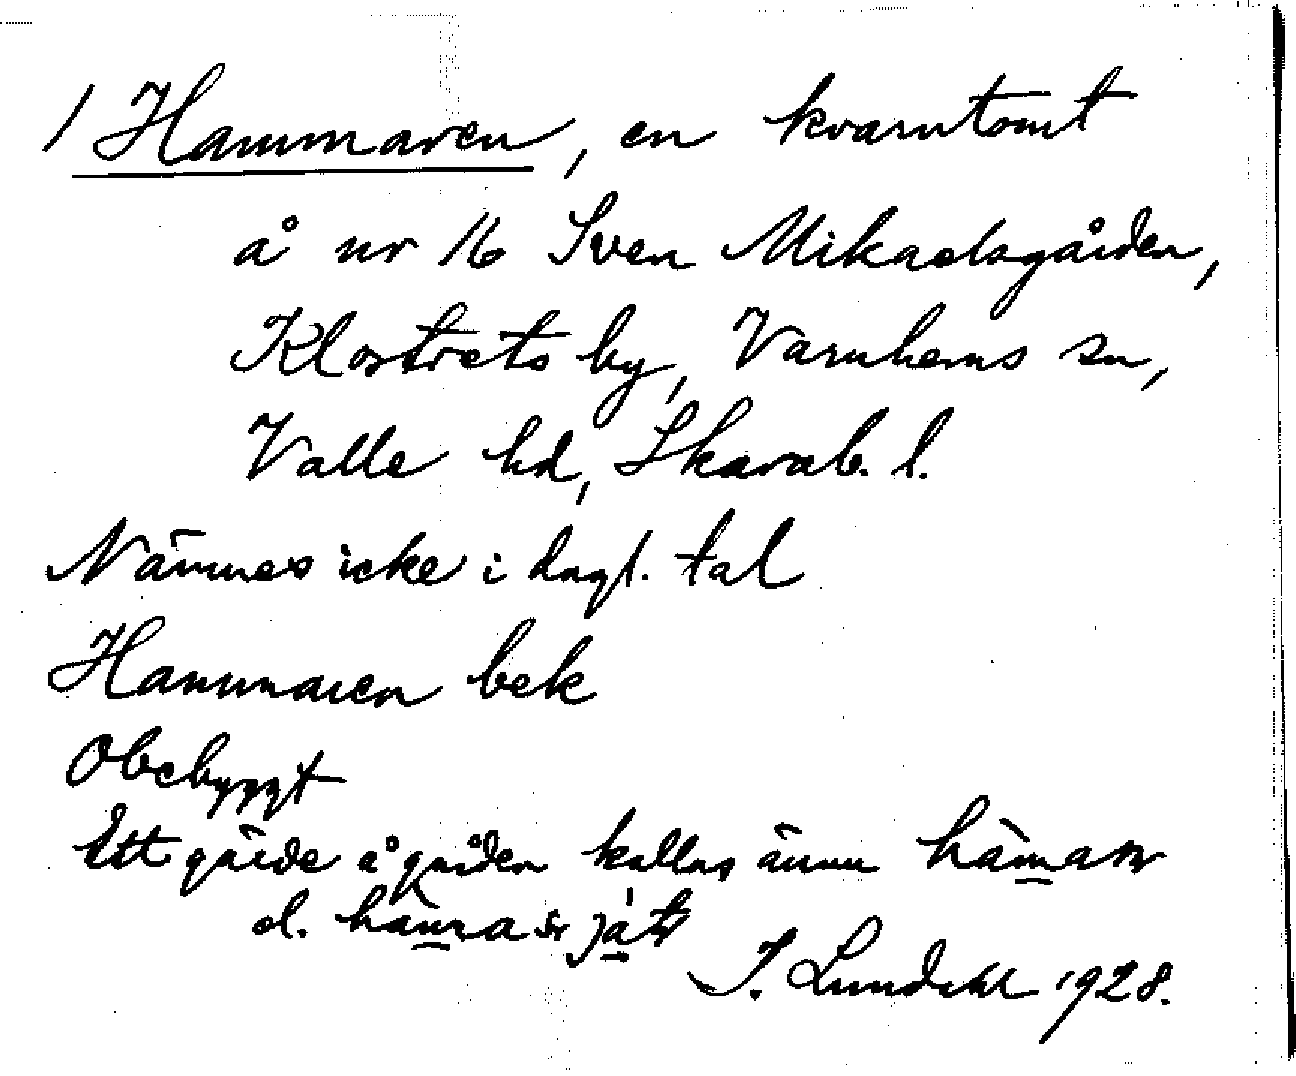 1 Hammaren, en kvarntomt
å nr 16 Sven Mikaelsgården,
Klostrets by, Varnhems sn,
Valle hd, Skarab. l.
Nämnes icke i dagl. tal
Hammaren bek
Obebyggt
Ett gärde å gården kallas ännu
el.
I. Lundahl 1928.